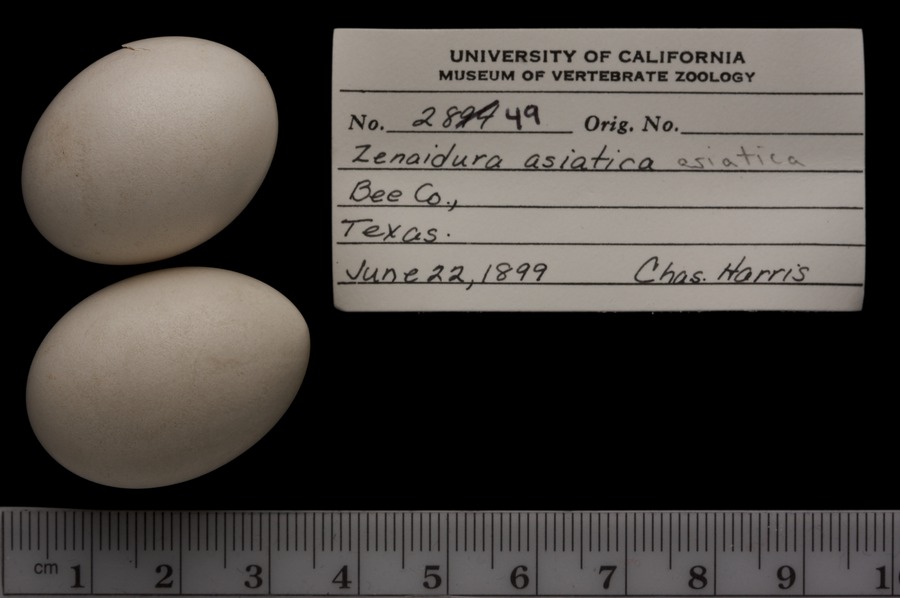 UNIVERSITY OF CALIFORNIA
MUSEUM OF VERTEBRATE ZOOLOGY
No. 2849 Orig. No.
Zenaidura asiatica asiatica
Bee Co.,
Texas.
June 22, 1899 Chas. Harris
cm 1 2 3 4 5 6 7 8 9